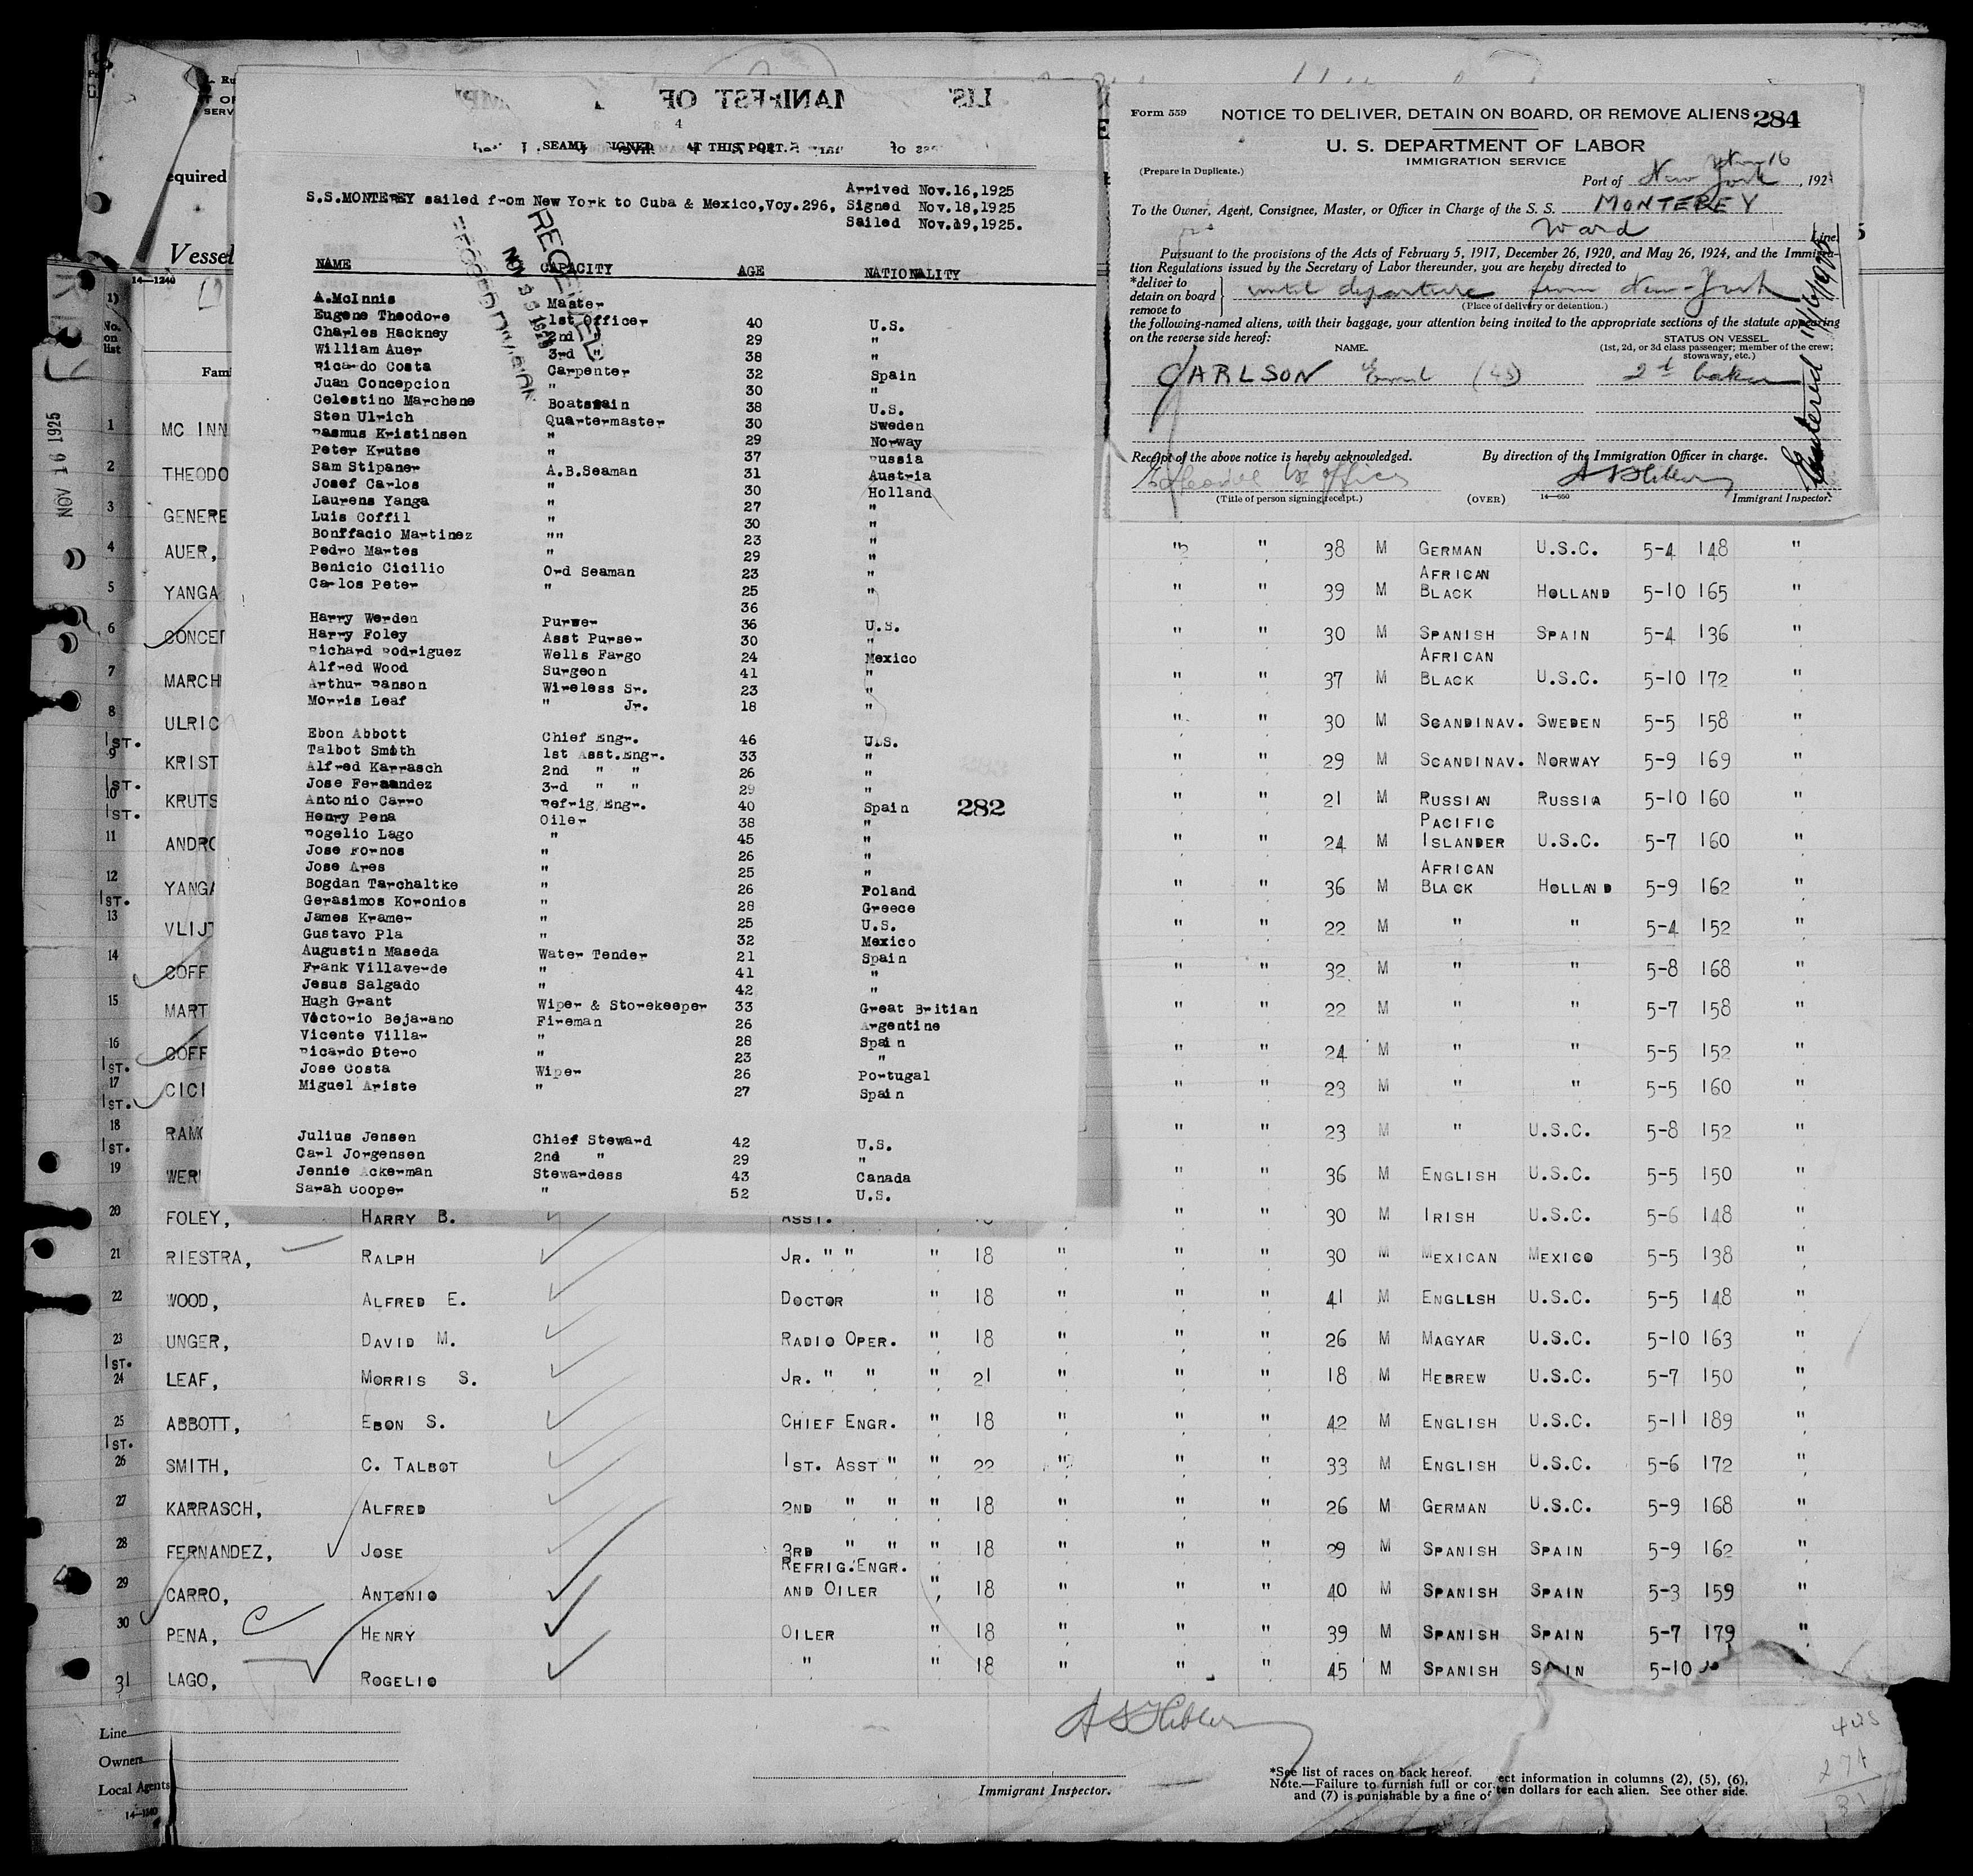 SEAMEN SIGNED AT THIS PORT.
S.S.MONTEREY sailed from New York to Cuba & Mexico,Voy.296,
Arrived Nov.16,1925
Signed Nov.18,1925
Sailed Nov.19,1925.
RECEIVED
NAME CAPACITY AGE NATIONALITY
A.McInnis Master
Eugene Theodore 1st Officer 40 U.S.
Charles Hackney 2nd " 29 "
William Auer 3rd " 38 "
Ricardo Costa Carpenter 32 Spain
Juan Concepcion " 30 "
Celestino Marchene Boatswain 38 U.S.
Sten Ulrich Quartermaster 30 Sweden
Rasmus Kristinsen " 29 Norway
Peter Krutse " 37 Russia
Sam Stipaner A.B.Seaman 31 Austria
Josef Carlos " 30 Holland
Laurens Yanga " 27 "
Luis Coffil " 30 "
Bonffacio Martinez "" 23 "
Pedro Martes " 29 "
Benicio Cicilio Ord Seaman 23 "
Carlos Peter " 25 "
36
Harry Werden Purwer 36 U.S.
Harry Foley Asst Purser 30 "
Richard Rodriguez Wells Fargo 24 Mexico
Alfred Wood Surgeon 41 "
Arthur Ranson Wireless Sr. 23 "
Morris Leaf " Jr. 18 "
Ebon Abbott Chief Engr. 46 U.S.
Talbot Smith 1st Asst.Engr. 33 "
Alfred Karrasch 2nd " " 26 "
Jose Fernandez 3rd " " 29 "
Antonio Carro Refrig/Engr. 40 Spain 282
Henry Pena Oiler 38 "
Rogelio Lago " 45 "
Jose Fornos " 26 "
Jose Ares " 25 "
Bogdan Tarchaltke " 26 Poland
Gerasimos Koronios " 28 Greece
James Kramer " 25 U.S.
Gustavo Pla " 32 Mexico
Augustin Maseda Water Tender 21 Spain
Frank Villaverde " 41 "
Jesus Salgado " 42 "
Hugh Grant Wiper & Storekeeper 33 Great Britian
Victorio Bejarano Fireman 26 Argentine
Vicente Villar " 28 Spain
Ricardo Otero " 23 "
Jose Costa Wiper 26 Portugal
Miguel Ariste " 27 Spain
Julius Jensen Chief Steward 42 U.S.
Carl Jorgensen 2nd " 29 "
Jennie Ackerman Stewardess 43 Canada
Sarah Cooper " 52 U.S.
Form 559
NOTICE TO DELIVER, DETAIN ON BOARD, OR REMOVE ALIENS 284
U. S. DEPARTMENT OF LABOR
IMMIGRATION SERVICE
(Prepare in Duplicate.)
Port of New York Nov 16, 192
To the Owner, Agent, Consignee, Master, or Officer in Charge of the S. S. MONTEREY
Ward Line
Pursuant to the provisions of the Acts of February 5, 1917, December 26, 1920, and May 26, 1924, and the Immigra-
tion Regulations issued by the Secretary of Labor thereunder, you are hereby directed to
*deliver to
detain on board
remove to
until departure from New-York
(Place of delivery or detention.)
the following-named aliens, with their baggage, your attention being invited to the appropriate sections of the statute appearing
on the reverse side hereof:
NAME. STATUS ON VESSEL
(1st, 2d, or 3d class passenger; member of the crew;
stowaway, etc.)
CARLSON Emil 2d baker
Receipt of the above notice is hereby acknowledged. By direction of the Immigration Officer in charge.
(Title of person signing receipt.) (OVER) 14—560 Immigrant Inspector.
Entered 11/16/1925
equired
Vessel
14—1240
No. on list
Fami
NOV 16 1925
1 MC INN
2 THEODO
3 GENERE
4 AUER, " " 38 M GERMAN U.S.C. 5-4 148 "
5 YANGA " " 39 M AFRICAN BLACK HOLLAND 5-10 165 "
6 CONCEP " " 30 M SPANISH SPAIN 5-4 136 "
7 MARCH " " 37 M AFRICAN BLACK U.S.C. 5-10 172 "
8 ULRIC " " 30 M SCANDINAV. SWEDEN 5-5 158 "
1ST.
9 KRIST " " 29 M SCANDINAV. NORWAY 5-9 169 "
1ST.
10 KRUTS " " 21 M RUSSIAN RUSSIA 5-10 160 "
1ST.
11 ANDRO " " 24 M PACIFIC ISLANDER U.S.C. 5-7 160 "
12 YANGA " " 36 M AFRICAN BLACK HOLLAND 5-9 162 "
1ST.
13 VLIJT " " 22 M " " 5-4 152 "
14 COFF " " 32 M " " 5-8 168 "
15 MART " " 22 M " " 5-7 158 "
16 COFF " " 24 M " " 5-5 152 "
1ST.
17 CICI " " 23 M " " 5-5 160 "
1ST.
18 RAMO " " 23 M " U.S.C. 5-8 152 "
1ST.
19 WER " " 36 M ENGLISH U.S.C. 5-5 150 "
20 FOLEY, HARRY B. ASST. " " 30 M IRISH U.S.C. 5-6 148 "
21 RIESTRA, RALPH JR. " " " 18 " " " 30 M MEXICAN MEXICO 5-5 138 "
22 WOOD, ALFRED E. DOCTOR " 18 " " " 41 M ENGLLSH U.S.C. 5-5 148 "
23 UNGER, DAVID M. RADIO OPER. " 18 " " " 26 M MAGYAR U.S.C. 5-10 163 "
1ST.
24 LEAF, MORRIS S. JR. " " " 21 " " " 18 M HEBREW U.S.C. 5-7 150 "
25 ABBOTT, EBON S. CHIEF ENGR. " 18 " " " 42 M ENGLISH U.S.C. 5-11 189 "
1ST.
26 SMITH, C. TALBOT 1ST. ASST " " 22 " " " 33 M ENGLISH U.S.C. 5-6 172 "
27 KARRASCH, ALFRED 2ND " " " 18 " " " 26 M GERMAN U.S.C. 5-9 168 "
28 FERNANDEZ, JOSE 3RD " " " 18 " " " 29 M SPANISH SPAIN 5-9 162 "
29 CARRO, ANTONIO REFRIG.ENGR. AND OILER " 18 " " " 40 M SPANISH SPAIN 5-3 159 "
30 PENA, HENRY OILER " 18 " " " 39 M SPANISH SPAIN 5-7 179 "
31 LAGO, ROGELIO " " 18 " " " 45 M SPANISH SPAIN 5-10
Line
Owners
Local Agents
14—1240
Immigrant Inspector.
*See list of races on back hereof.
Note.—Failure to furnish full or correct information in columns (2), (5), (6),
and (7) is punishable by a fine of ten dollars for each alien. See other side.